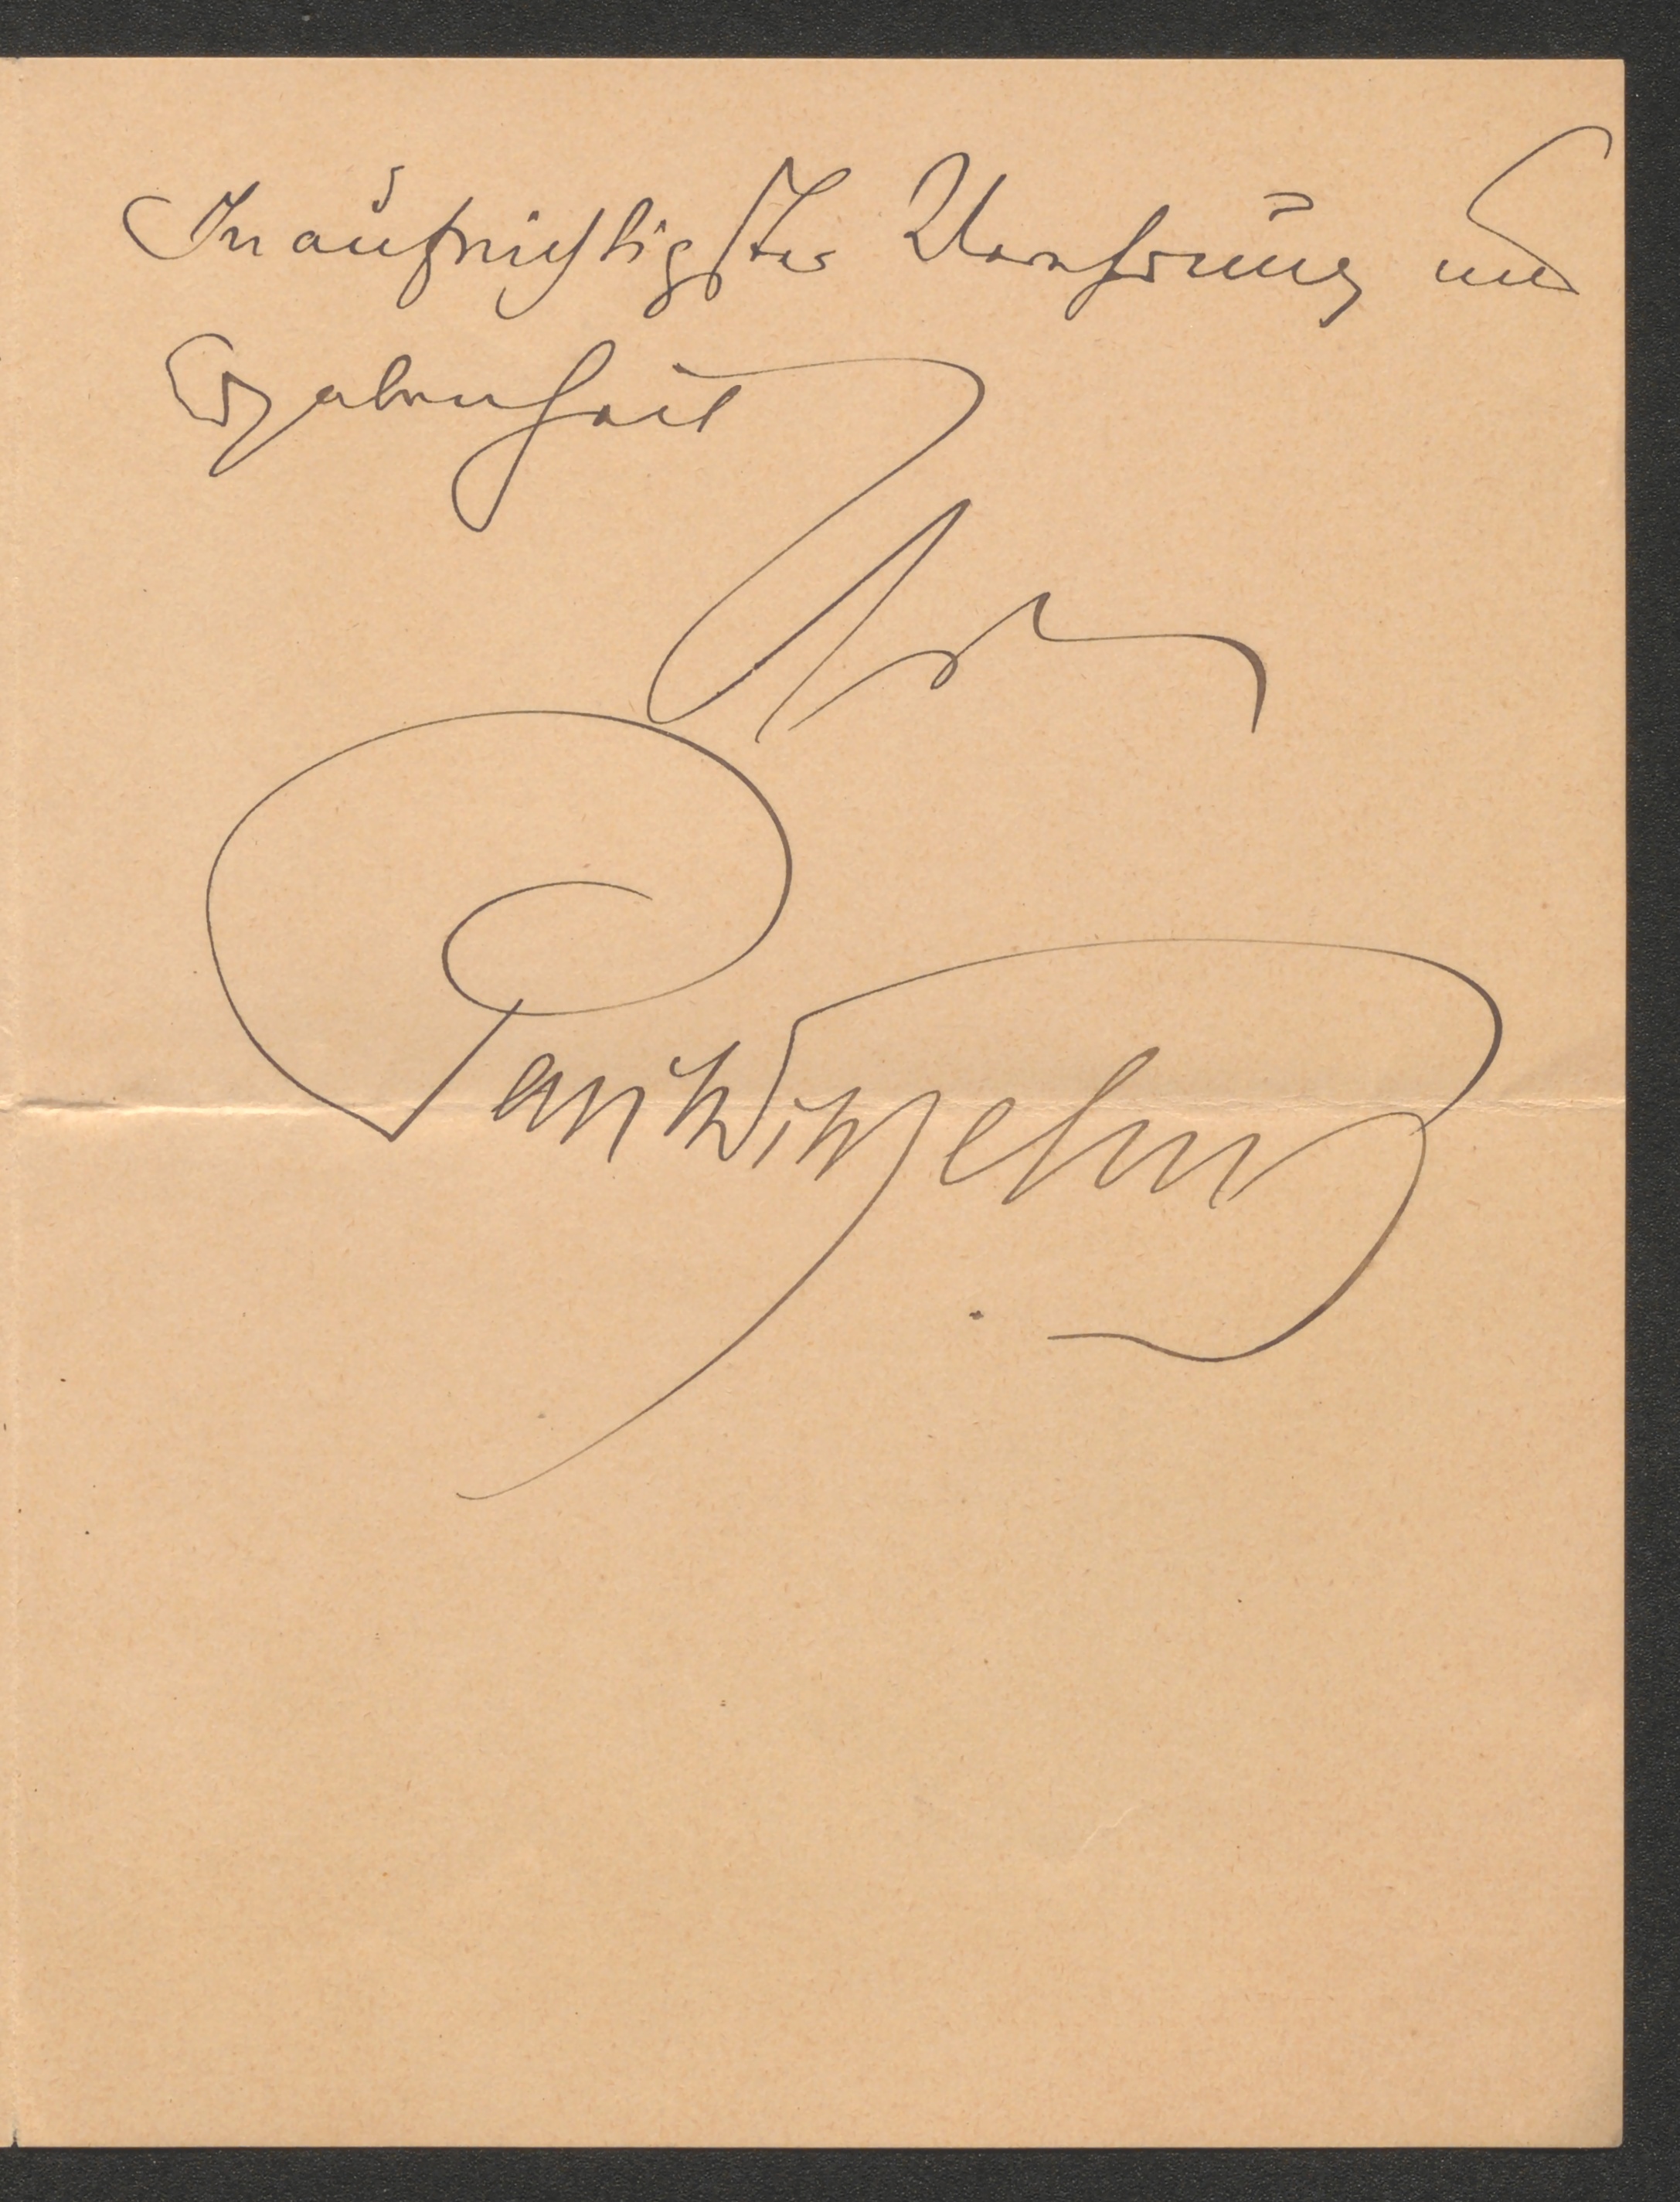 In aufrichtigster Verehrung und
Ergebenheit
Ihr
Paul Wilhelm